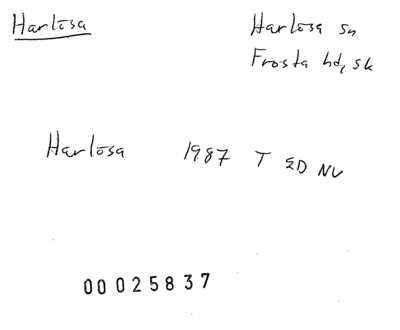 Harlösa
Harlösa sn
Frosta hd, sk
Harlösa 1987 T 2D NV
00025837